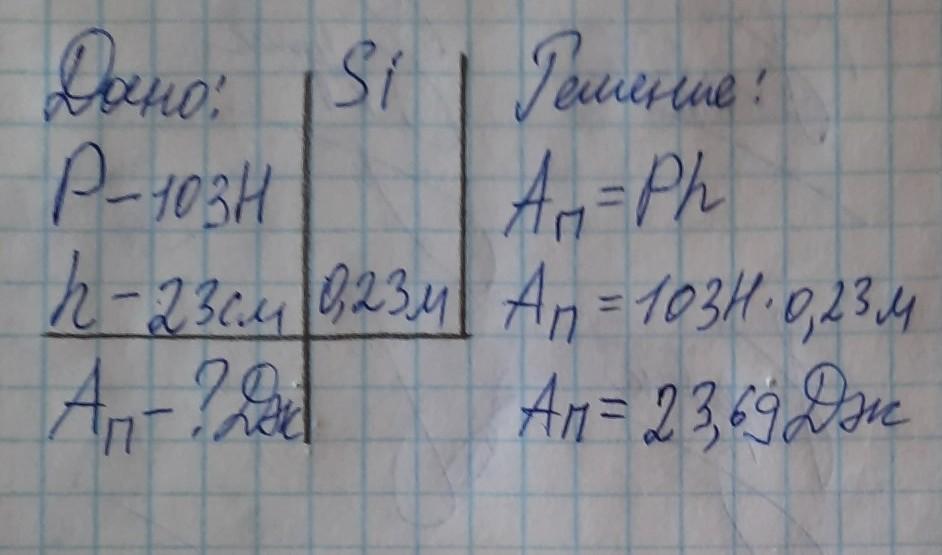 Дано: Si Решение:
P-103Н Aп=Ph
h-23см 0,23м Aп=103Н·0,23м
Aп-?Дж Aп=23,69Дж